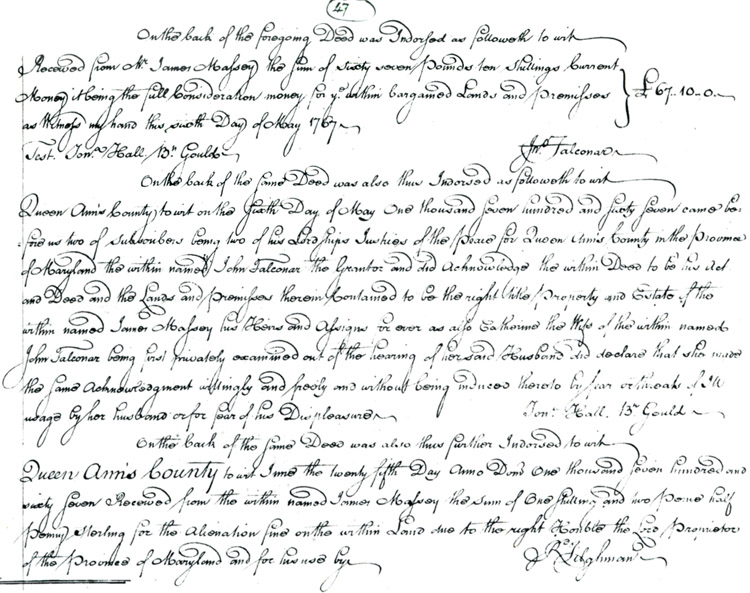 47
On the back of the foregoing Deed was Indorsed as followeth to wit
Received from Mr. James Massey the sum of sixty seven pounds ten shillings Current
Money it being the full Consideration money for ye. within bargained Lands and premisses } £67-10-0
as Witness my hand this sixth Day of May 1767
Test. Jon.a Hall, Bn. Gould Jno. Falconar
On the back of the same Deed was also thus Indorsed as followeth to wit
Queen Ann's County to wit on the sixth Day of May One thousand seven hundred and sixty seven came be-
fore us two of Subscribers being two of his Lordships Justices of the peace for Queen Ann's County in the Province
of Maryland the within named John Falconar the Grantor and did Acknowledge the within Deed to be his Act
and Deed and the Lands and premisses therein Contained to be the right title Property and Estate of the
within named James Massey his Heirs and Assigns for ever as also Catherine the Wife of the within named
John Falconar being first privately examined out of the hearing of her said Husband did declare that she made
the same Acknowledgment willingly and freely and without being induced thereto by fear or threats of Ill
usage by her husband or for fear of his Displeasure Jon. Hall, Bn. Gould
On the back of the same Deed was also thus further Indorsed to wit
Queen Ann's County to wit June the twenty fifth Day Anno Dom. One thousand seven hundred and
sixty seven Received from the within named James Massey the sum of One shilling and two pence half
penny sterling for the Alienation fine on the within Land due to the right Honble the Lord Proprietor
of the Province of Maryland and for his use by Rd. Tilghman